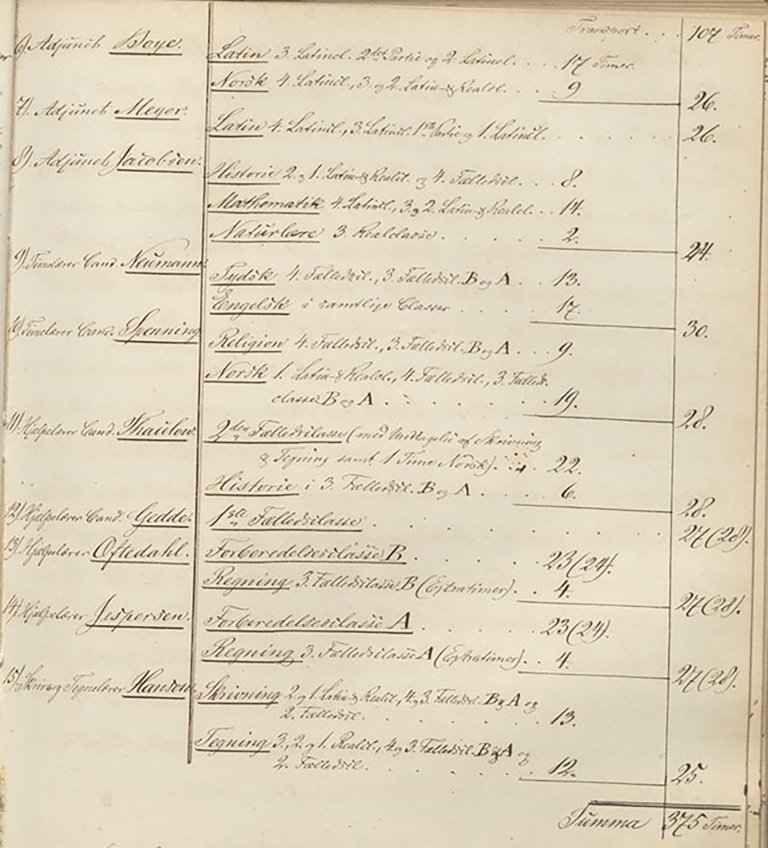 Transport . . . 107 Timer.
6) Adjunct Boye. Latin 3. Latincl. 2det Partie og 2. Latincl. . . . 17 Timer.
Norsk 4. Latincl., 3. og 2. Latin- & Realcl. . . . 9 26.
7) Adjunct Meyer. Latin 4. Latincl., 3. Latincl. 1ste Partie og 1. Latincl. . . . . . 26.
8) Adjunct Jacobsen. Historie 2. og 1. Latin- & Realcl. og 4. Fælledscl. . . . 8.
Mathematik 4. Latincl., 3. og 2. Latin- & Realcl. . . 14.
Naturlære 3. Realclasse . . . . . 2. 24.
9) Timelærer Cand. Neumann. Tydsk 4. Fælledscl., 3. Fælledscl. B og A . . 13.
Engelsk i samtlige Classer . . . . 17. 30.
10) Timelærer Cand. Spenning Religion 4. Fælledscl., 3. Fælledscl. B og A . . . 9.
Norsk 1. Latin- & Realcl., 4. Fælledscl., 3. Fælleds-
classe B og A . . . . . 19. 28.
11) Hjælpelærer Cand. Thaulow. 2den Fælledsclasse (med Undtagelse af Skrivning
& Tegning samt 1 Time Norsk) . . . 22.
Historie i 3. Fælledscl. B og A . . . 6. 28.
12) Hjælpelærer Cand. Gedde. 1ste Fælledsclasse . . . . . . 27 (28).
13) Hjælpelærer Oftedahl. Forberedelsesclasse B . . . . 23 (24).
Regning 3. Fælledsclasse B (Extratimer) . . 4. 27 (28).
14) Hjælpelærer Jespersen. Forberedelsesclasse A . . . . 23 (24).
Regning 3. Fælledsclasse A (Extratimer) . . 4. 27 (28).
15) Skrive- og Tegnelærer Hansen Skrivning 2. og 1. Latin- & Realcl., 4. og 3. Fælledscl. B og A og
2. Fælledscl. . . . . . 13.
Tegning 3., 2. og 1. Realcl., 4. og 3. Fælledscl. B og A og
2. Fælledscl. . . . . . 12. 25.
Summa 375 Timer.